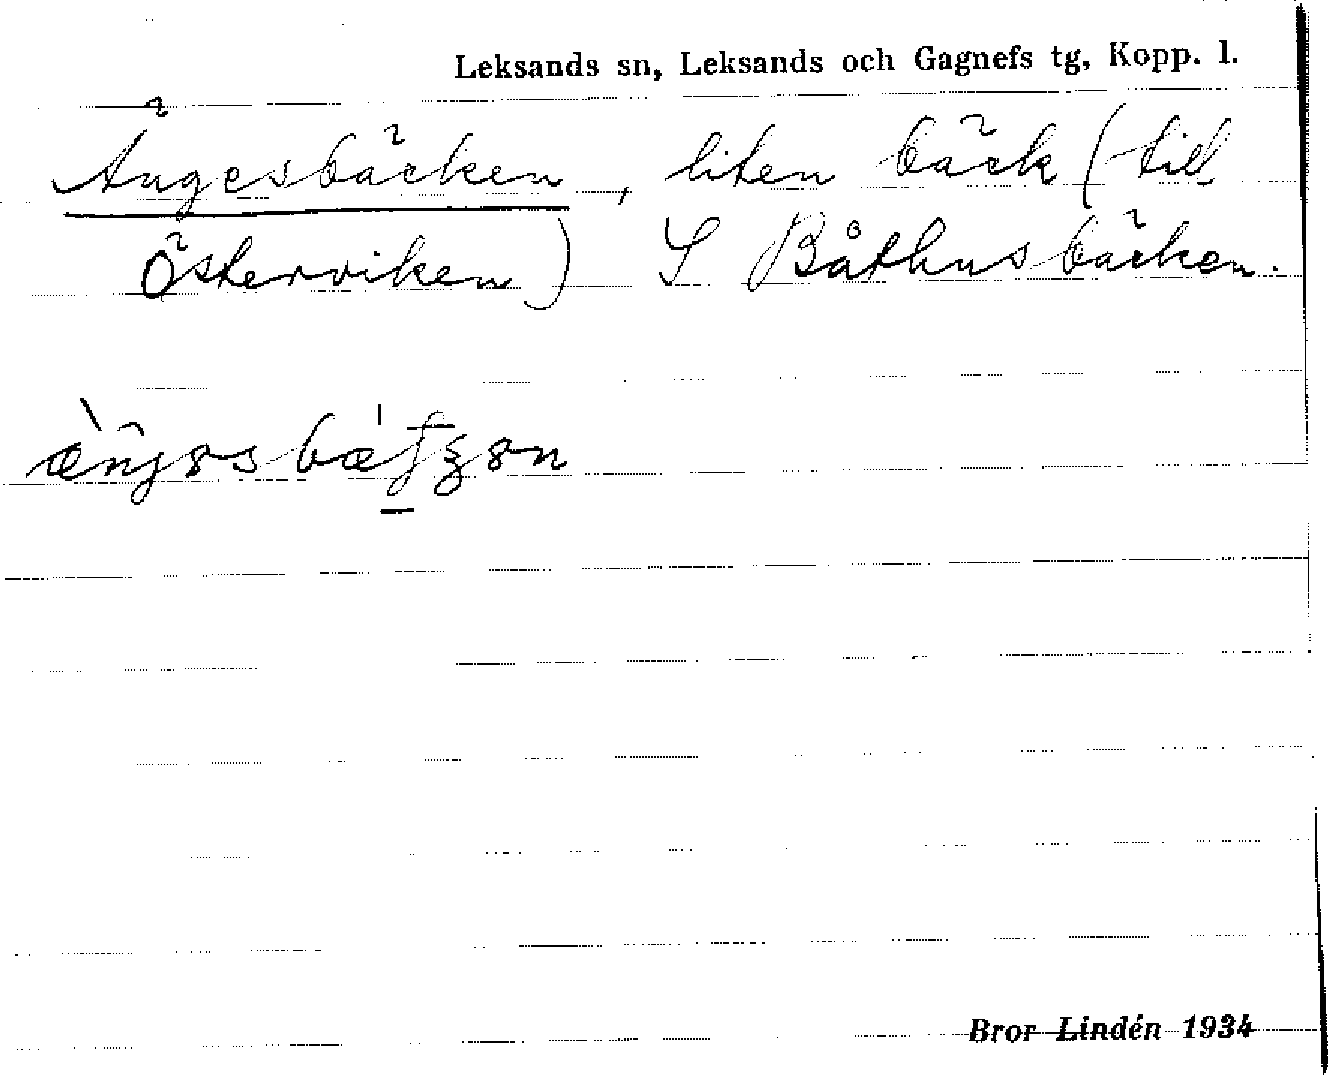 Leksands sn, Leksands och Gagnefs tg, Kopp. l.
Ängesbäcken, liten bäck (till
Österviken) S Båthusbäcken.
Bror Lindén 1934